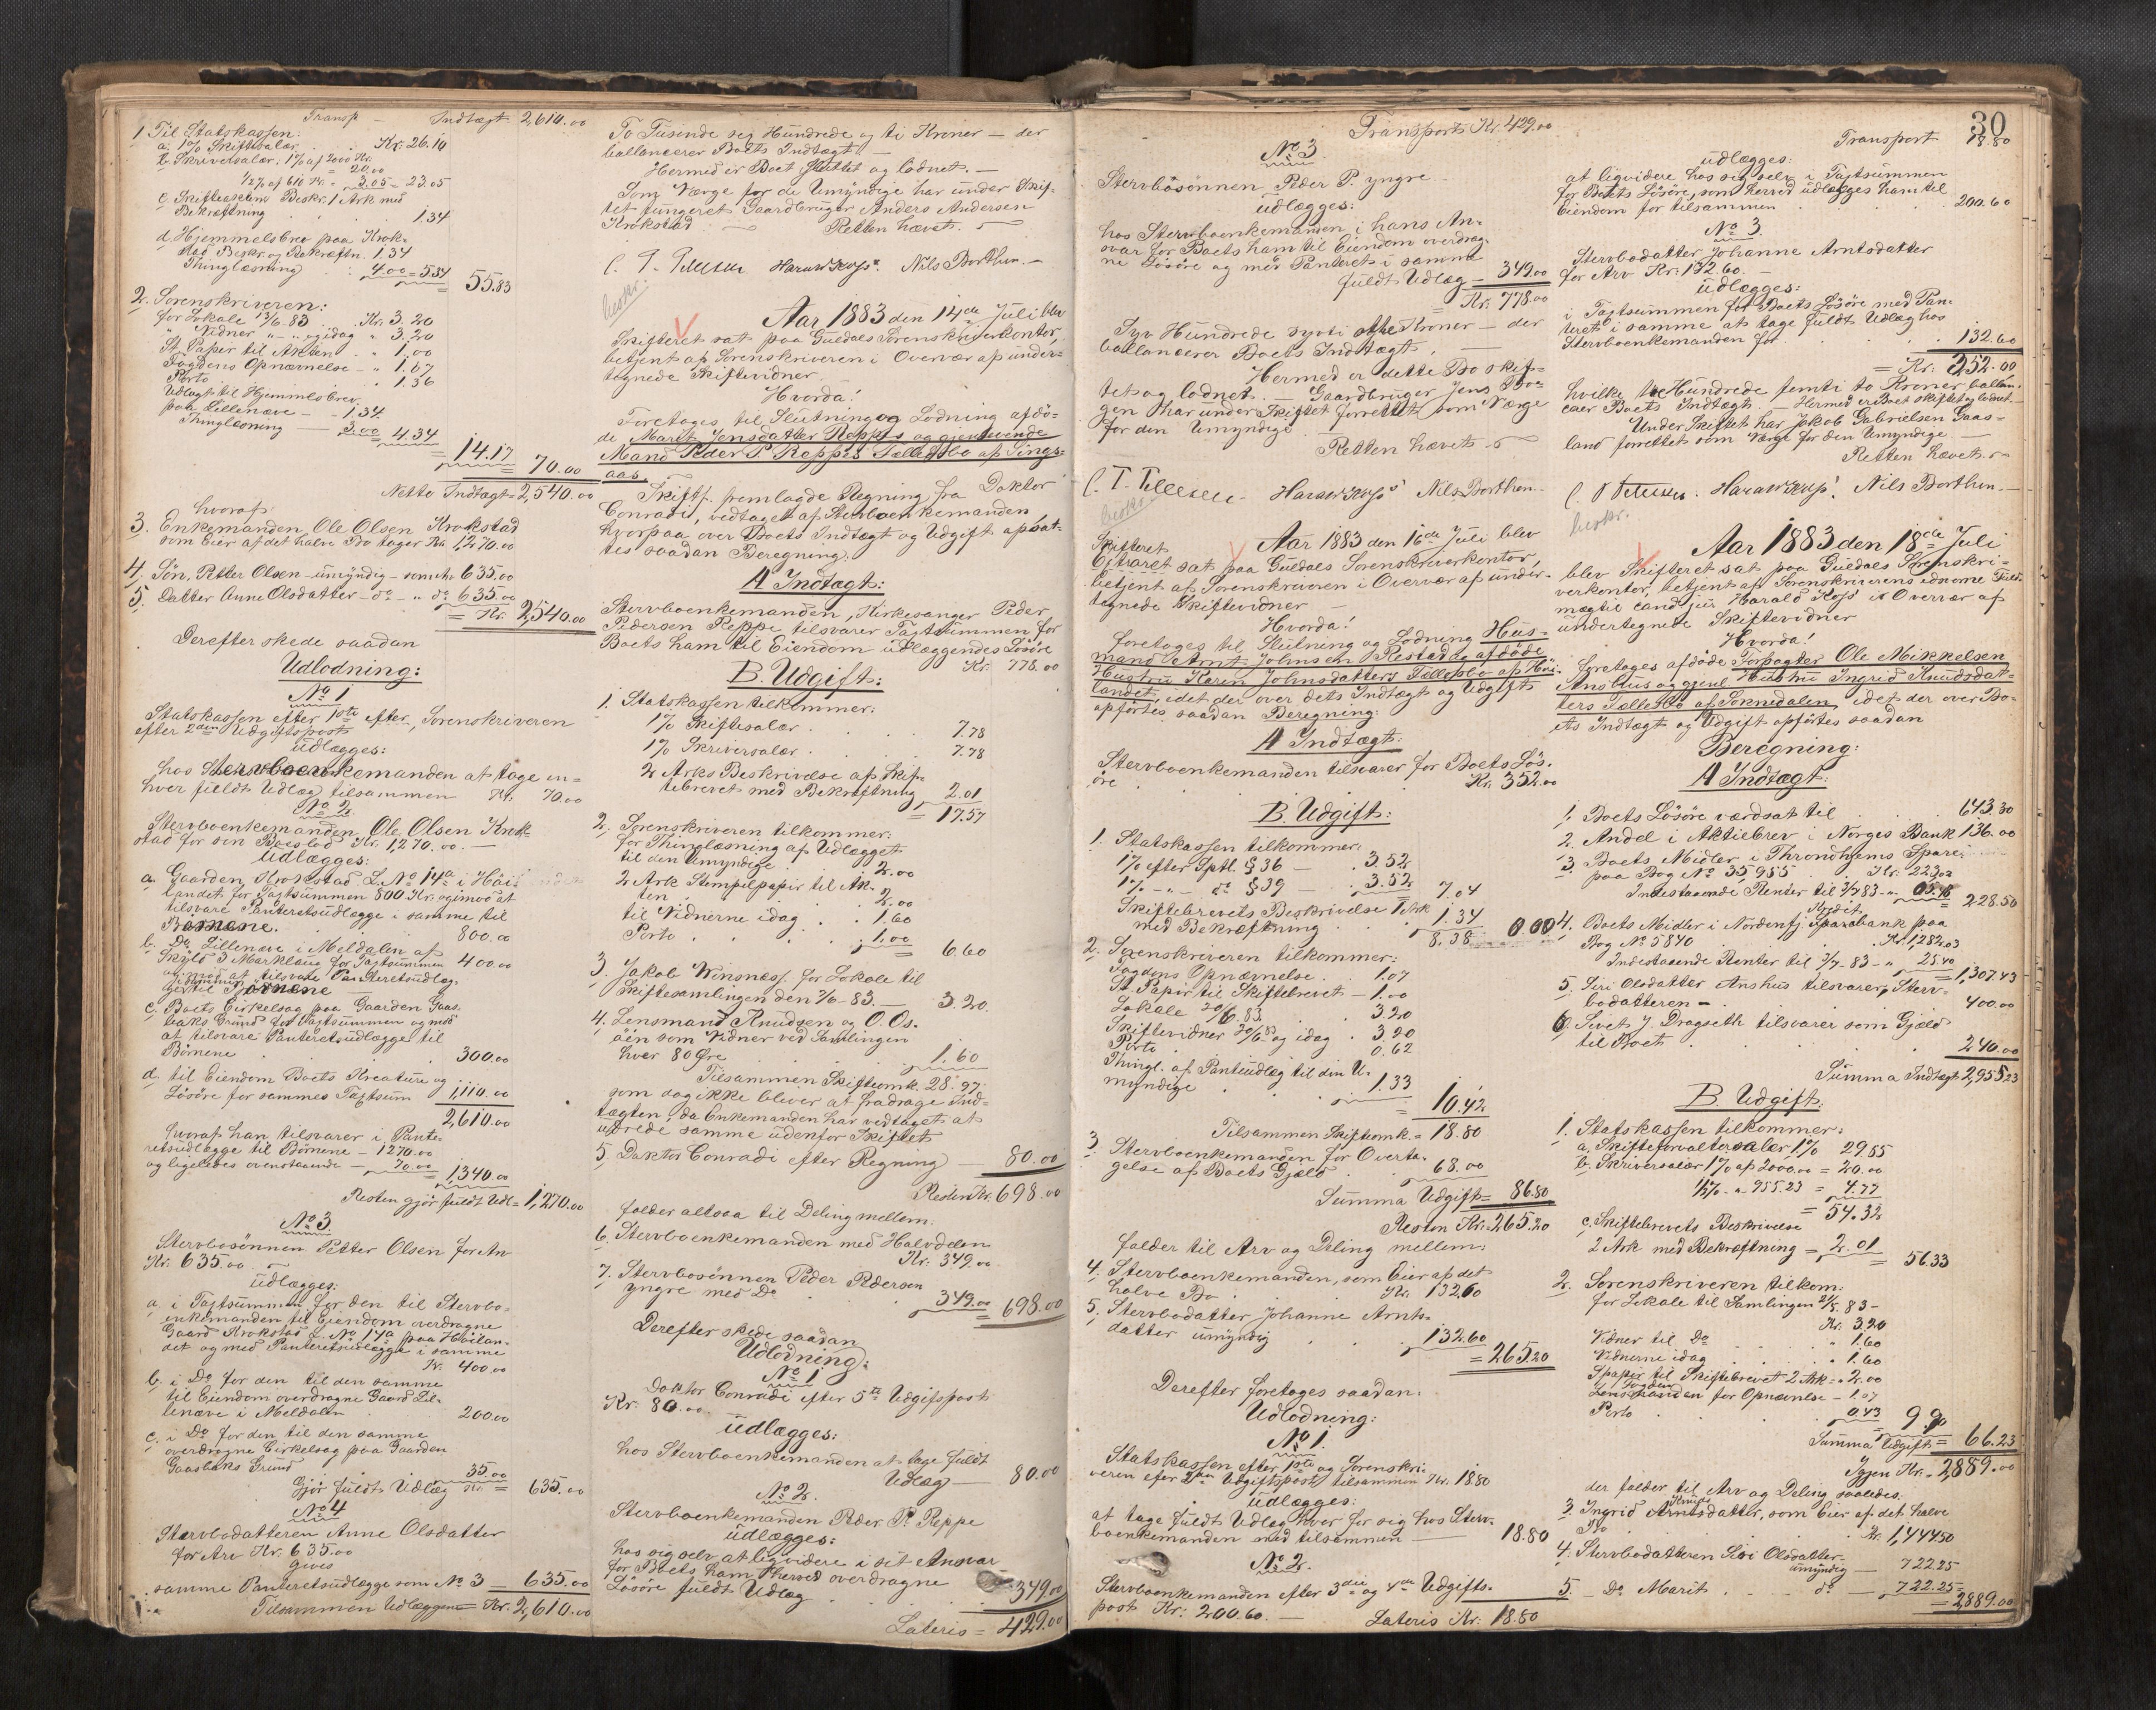 Transp — Indtægt 2,610.00
1. Til Statskassen:
a. 1% Skiftesalær . . Kr. 26.10
b. Skriversalær: 1% af 2000 Kr.
= 20.00
1/2% af 610 Kr. = 3.05 = 23.05
c. Skifteaktens Beskr. 1 Ark med
Bekræftning . . . 1.34
d. Hjemmelsbrev paa Krok-
stad Beskr. og Bekræftn. 1.34
Thinglæsning . 4.00 = 5.34
= 55.83
2. Sorenskriveren:
for Lokale 13/6 83 . Kr. 3.20
" Vidner " — " og idag " 3.20
St. Papir til Akten — " 1.00
Fogdens Opnævnelse — " 1.07
Porto . . . 1.36
Udlagt til Hjemmelsbrev
paa Lillenæve — 1.34
Thinglæsning — 3.00 = 4.34
= 14.17
= 70.00
Netto Indtægt = 2,540.00
hvoraf:
3. Enkemanden Ole Olsen Krokstad
som Eier af det halve Bo tager Kr. 1,270.00
4. Søn, Petter Olsen — umyndig — som Arv 635.00
5. Datter Anne Olsdatter — do — " do 635.00
= Kr. 2,540.00
Derefter skede saadan
Udlodning:
No 1
Statskassen efter 1ste efter, Sorenskriveren
efter 2den Udgiftspost
udlægges:
hos Stervboenkemanden at tage en-
hver fuldt Udlæg tilsammen Kr. 70.00
No 2
Stervboenkemanden, Ole Olsen Krok-
stad for sin Boeslod Kr. 1,270.00. —
udlægges:
a. Gaarden Krokstad L. No 14a i Høi-
landet for Taxtsummen 800 Kr. ogimod at
tilsvare Panteretsudlægge i samme til
Børnene. 800.00
b. Do Lillenæve i Meldalen af
Skyld 3 Marklaug for Taxtsummen 400.00
og mod at tilsvare Panteretsudlæg-
get til Børnene
c. Boets Cirkelsag paa Gaarden Gaas-
baks Grund for Taxtsummen og mod
at tilsvare Panteretsudlægge til
Børnene . . . 300.00
d. til Eiendom Boets Kreature og
Løsøre for sammes Taxtsum 1,110.00
2,610.00
hvoraf han tilsvarer i Pante-
retsudlægge til Børnene — 1270.00
og ligeledes ovenstaaende — 70.00
1,340.00
Resten gjør fuldt Udl. = 1,270.00
No 3
Stervbosønnen Petter Olsen for Arv
Kr. 635.00
udlægges:
a. i Taxtsummen for den til Stervbo-
enkemanden til Eiendom overdragne
Gaard Krokstad L. No 14a paa Høilan-
det og med Panteretsudlægge i samme
Kr. 400.00
b. i Do for den til den samme
til Eiendom overdragne Gaard Lil-
lenæve i Meldalen . 200.00
c. i Do for den til den samme
overdragne Cirkelsag paa Gaarden
Gaasbaks Grund 35.00
Gjør fuldt Udlæg Kr. = 635.00
No 4
Stervbodatteren Anne Olsdatter
for Arv Kr. 635.00
gives
samme Panteretsudlægge som No 3 — 635.00
Tilsammen Udlæggene = Kr. 2,610.00
To Tusende sex Hundrede og ti Kroner — der
ballancerer Boets Indtægt. —
Hermed er Boet sluttet og lodnet. —
Som Værge for de Umyndige har under Skif-
tet fungeret Gaardbruger Anders Andersen
Krokstad. — Retten hævet.
Nils Borthen. —
beskr.
Aar 1883 den 14de Juli blev
Skifteret sat paa Guldals Sorenskriverkontor,
betjent af Sorenskriveren i Overvær af under-
tegnede Skiftevidner.
Hvorda!
Foretoges til Slutning og Lodning afdø-
de Marit Jensdatter Reppes og gjenlevende
Mand Peder P. Reppes Fællesbo af Sings-
aas.
Skiftf. fremlagde Regning fra Doktor
Conradi, vedtaget af Stervboenkemanden,
hvorpaa over Boets Indtægt og Udgift opsat-
tes saadan Beregning:
A Indtægt:
Stervboenkemanden, Kirkesanger Peder
Pedersen Reppe tilsvarer Taxtsummen for
Boets ham til Eiendom udlæggendes Løsøre
Kr. 778.00
B. Udgift:
1. Statskassen tilkommer:
1% Skiftesalær . . . 7.78
1% Skriversalær . . 7.78
2 Arks Beskrivelse af Skif-
tebrevet med Bekræftning 2.01
= 17.57
2. Sorenskriveren tilkommer:
for Thinglæsning af Udlægget
til den Umyndige . . 2.00
2 Ark Stempelpapir til Ak-
ten . . . 2.00
til Vidnerne idag . . 1.60
Porto . . . 1.00
= 6.60
3. Jakob Winsnæss. for Lokale til
Skiftesamlingen den 7/6 — 83. — 3.20
4. Lensmand Knudsen og O. Os-
øien som Vidner ved Samlingen
hver 80 Øre . . . 1.60
Tilsammen Skifteomk. 28.97
som dog ikke bliver at fradrage Ind-
tægten, da Enkemanden har vedtaget at
udrede samme udenfor Skiftet
5. Doktor Conradi efter Regning — 80.00
Resten Kr. 698.00
falder altsaa til Deling mellem:
6. Stervboenkemanden med Halvdelen
Kr. 349.00
7. Stervbosønnen Peder Pedersen
yngre med Do . . 349.00 = 698.00
Derefter skede saadan
Udlodning:
No 1
Doktor Conradi efter 5te Udgiftspost
Kr. 80.00.
udlægges:
hos Stervboenkemanden at tage fuldt
Udlæg — 80.00
No 2.
Stervboenkemanden Peder P. Reppe
udlægges:
hos sig selv at ligvidere i sit Ansvar
for Boets ham herved overdragne
Løsøre fuldt Udlæg . . 349.00
Lateris = 429.00
Transport Kr. 429.00
No 3.
Stervbosønnen Peder P. yngre
udlægges:
hos Stervboenkemanden i hans An-
svar for Boets ham til Eiendom overdrag-
ne Løsøre og med Panteret i samme
fuldt Udlæg — 349.00
= Kr. 778.00
Syv Hundrede sytti otte Kroner — der
ballancerer Boets Indtægt.
Hermed er dette Bo skif-
tet og lodnet. — Gaardbruger Jens
har under Skiftet forrettet som Værge
for den Umyndige.
Retten hævet.
Nils Borthen. —
beskr.
Skifteret
Aar 1883 den 16de Juli blev
sat paa Guldals Sorenskriverkontor,
betjent af Sorenskriveren i Overvær af under-
tegnede Skiftevidner —
Hvorda!
Foretoges til Slutning og Lodning Hus-
mand Arnt Johnsen Kestad og afdøde
Hustru Karen Johnsdatters Fællesbo af Høi-
landet, idet der over dets Indtægt og Udgift
opførtes saadan Beregning:
A Indtægt:
Stervboenkemanden tilsvarer for Boets Løs-
øre . . . Kr. 352.00
B. Udgift:
1. Statskassen tilkommer:
1% efter Sptl. § 36 — . 3.52
1% — " — do § 39 — . 3.52 = 7.04
Skiftebrevets Beskrivelse 1 Ark
med Bekræftning . . 1.34
8.38
2. Sorenskriveren tilkommer:
Fogdens Opnævnelse . . 1.07
St. Papir til Skiftebrevet — 1.00
Lokale 20/6 83 . . 3.20
Skiftevidner 20/6 83 og idag . 3.20
Porto . . . 0.62
Thingl. af Panteudlæg til den U-
myndige . . 1.33
= 10.42
Tilsammen Skifteomk. = 18.80
3. Stervboenkemanden for Overta-
gelse af Boets Gjæld . 68.00
Summa Udgift = 86.80
Resten Kr. = 265.20
falder til Arv og Deling mellem:
4. Stervboenkemanden, som Eier af det
halve Bo . . Kr. 132.60
5. Stervbodatter Johanne Arnts-
datter umyndig . . 132.60
= 265.20
Derefter foretoges saadan:
Udlodning:
No 1.
Statskassen efter 1ste og Sorenskri-
veren efter 2den Udgiftspost tilsammen Kr. 18.80
udlægges:
at tage fuldt Udlæg hver for sig hos Sterv-
boenkemanden med tilsammen — 18.80
No 2.
Stervboenkemanden efter 3die og 4de Udgifts-
post Kr. 200.60. —
Lateris Kr. 18.80
30
Transport 18.80
udlægges:
at ligvidere hos sig selv i Taxtsummen
for Boets Løsøre, som herved udlægges ham til
Eiendom for tilsammen . . 200.60
No 3.
Stervbodatter Johanne Arntsdatter
for Arv Kr. 132.60. —
udlægges:
i Taxtsummen for Boets Løsøre med Pan-
teret i samme at tage fuldt Udlæg hos
Stervboenkemanden for . . . 132.60
= Kr. 352.00
hvilke tre Hundrede femti to Kroner ballan-
cerer Boets Indtægt. — Hermed er Boet skiftet og lodnet —
Under Skiftet har Jakob Gabrielsen Gaas-
land forrettet som Værge for den Umyndige —
Retten hævet.
Nils Borthen. —
beskr.
Aar 1883 den 18de Juli
blev Skifteret sat paa Guldals Sorenskri-
verkontor, betjent af Sorenskriverens edsvorne Fuld-
mægtig cand. jur. Harald Koss i Overvær af
undertegnede Skiftevidner
Hvorda!
Foretoges afdøde Forpagter Ole Mikkelsen
Anshus og gjenl. Hustru Ingrid Knudsdat-
ters Fællesbo af Soknedalen, idet der over Bo-
ets Indtægt og Udgift opførtes saadan
Beregning:
A Indtægt:
1. Boets Løsøre værdsat til 643.30
2. Andel i Aktiebrev i Norges Bank 136.00
3. Boets Midler i Throndhjems Spare-
paa Bog No 35,955 . Kr. 223.02
Indestaaende Renter til 3/7 83 — " 05.48
= 228.50
4. Boets Midler i Nordenfj. Kreditbank paa
Bog No 5840 . . Kr. 1,282.03
Indestaaende Renter til 3/7 — 83 — " 25.40
= 1,307.43
5. Siri Olsdatter Anshus tilsvarer, Sterv-
bodatteren — 400.00
6. Sivert J. Dragseth tilsvarer som Gjæld
til Boet . . . 240.00
Summa Indtægt 2,955.23
B. Udgift:
1. Statskassen tilkommer:
a. Skifteforvaltersalær 1% 29.55
b. Skriversalær 1% af 2000.00 = 20.00
1/2% — " 955.23 = 4.77
= 54.32
c. Skiftebrevets Beskrivelse
2 Ark med Bekræftning = 2.01
= 56.33
2. Sorenskriveren tilkom:
for Lokale til Samlingen 21/5 83 —
Kr. 3.20
Vidner til Do . . " 1.60
Vidnerne idag . . " 1.60
Stpapir til Skiftebrevet 2 Ark — " 2.00
Fogden for Opnævnelse — 1.07
Porto . . . 0.43
= 9.90
Summa Udgift = 66.23
Igjen Kr. = 2,889.00
der falder til Arv og Deling saaledes:
3. Ingrid Knudsdatter, som Eier af det halve
Bo . . Kr. 1,444.50
4. Stervbodatteren Siri Olsdatter —
umyndig — 722.25
5. — Do Marit . . do — 722.25
= 2889.00